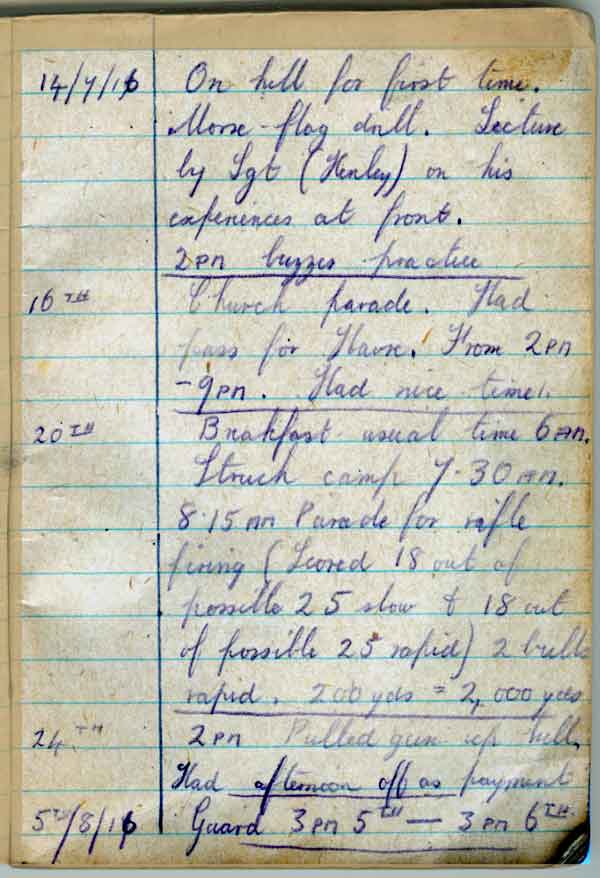 14/7/16 On hill for first time.
Morse-flag drill. Lecture
by Sgt (Henley) on his
experiences at front.
2PM buzzer practice
16TH Church parade. Had
pass for Havre. From 2PM
-9PM. Had nice time.
20TH Breakfast usual time 6AM.
Struck camp 7.30AM.
8.15AM Parade for rifle
firing (Scored 18 out of
possible 25 slow & 18 out
of possible 25 rapid) 2 bulls
rapid. 200 yds = 2,000 yds
24TH 2PM Pulled gun up hill,
Had afternoon off as payment
5TH/8/16 Guard 3PM 5TH — 3PM 6TH.